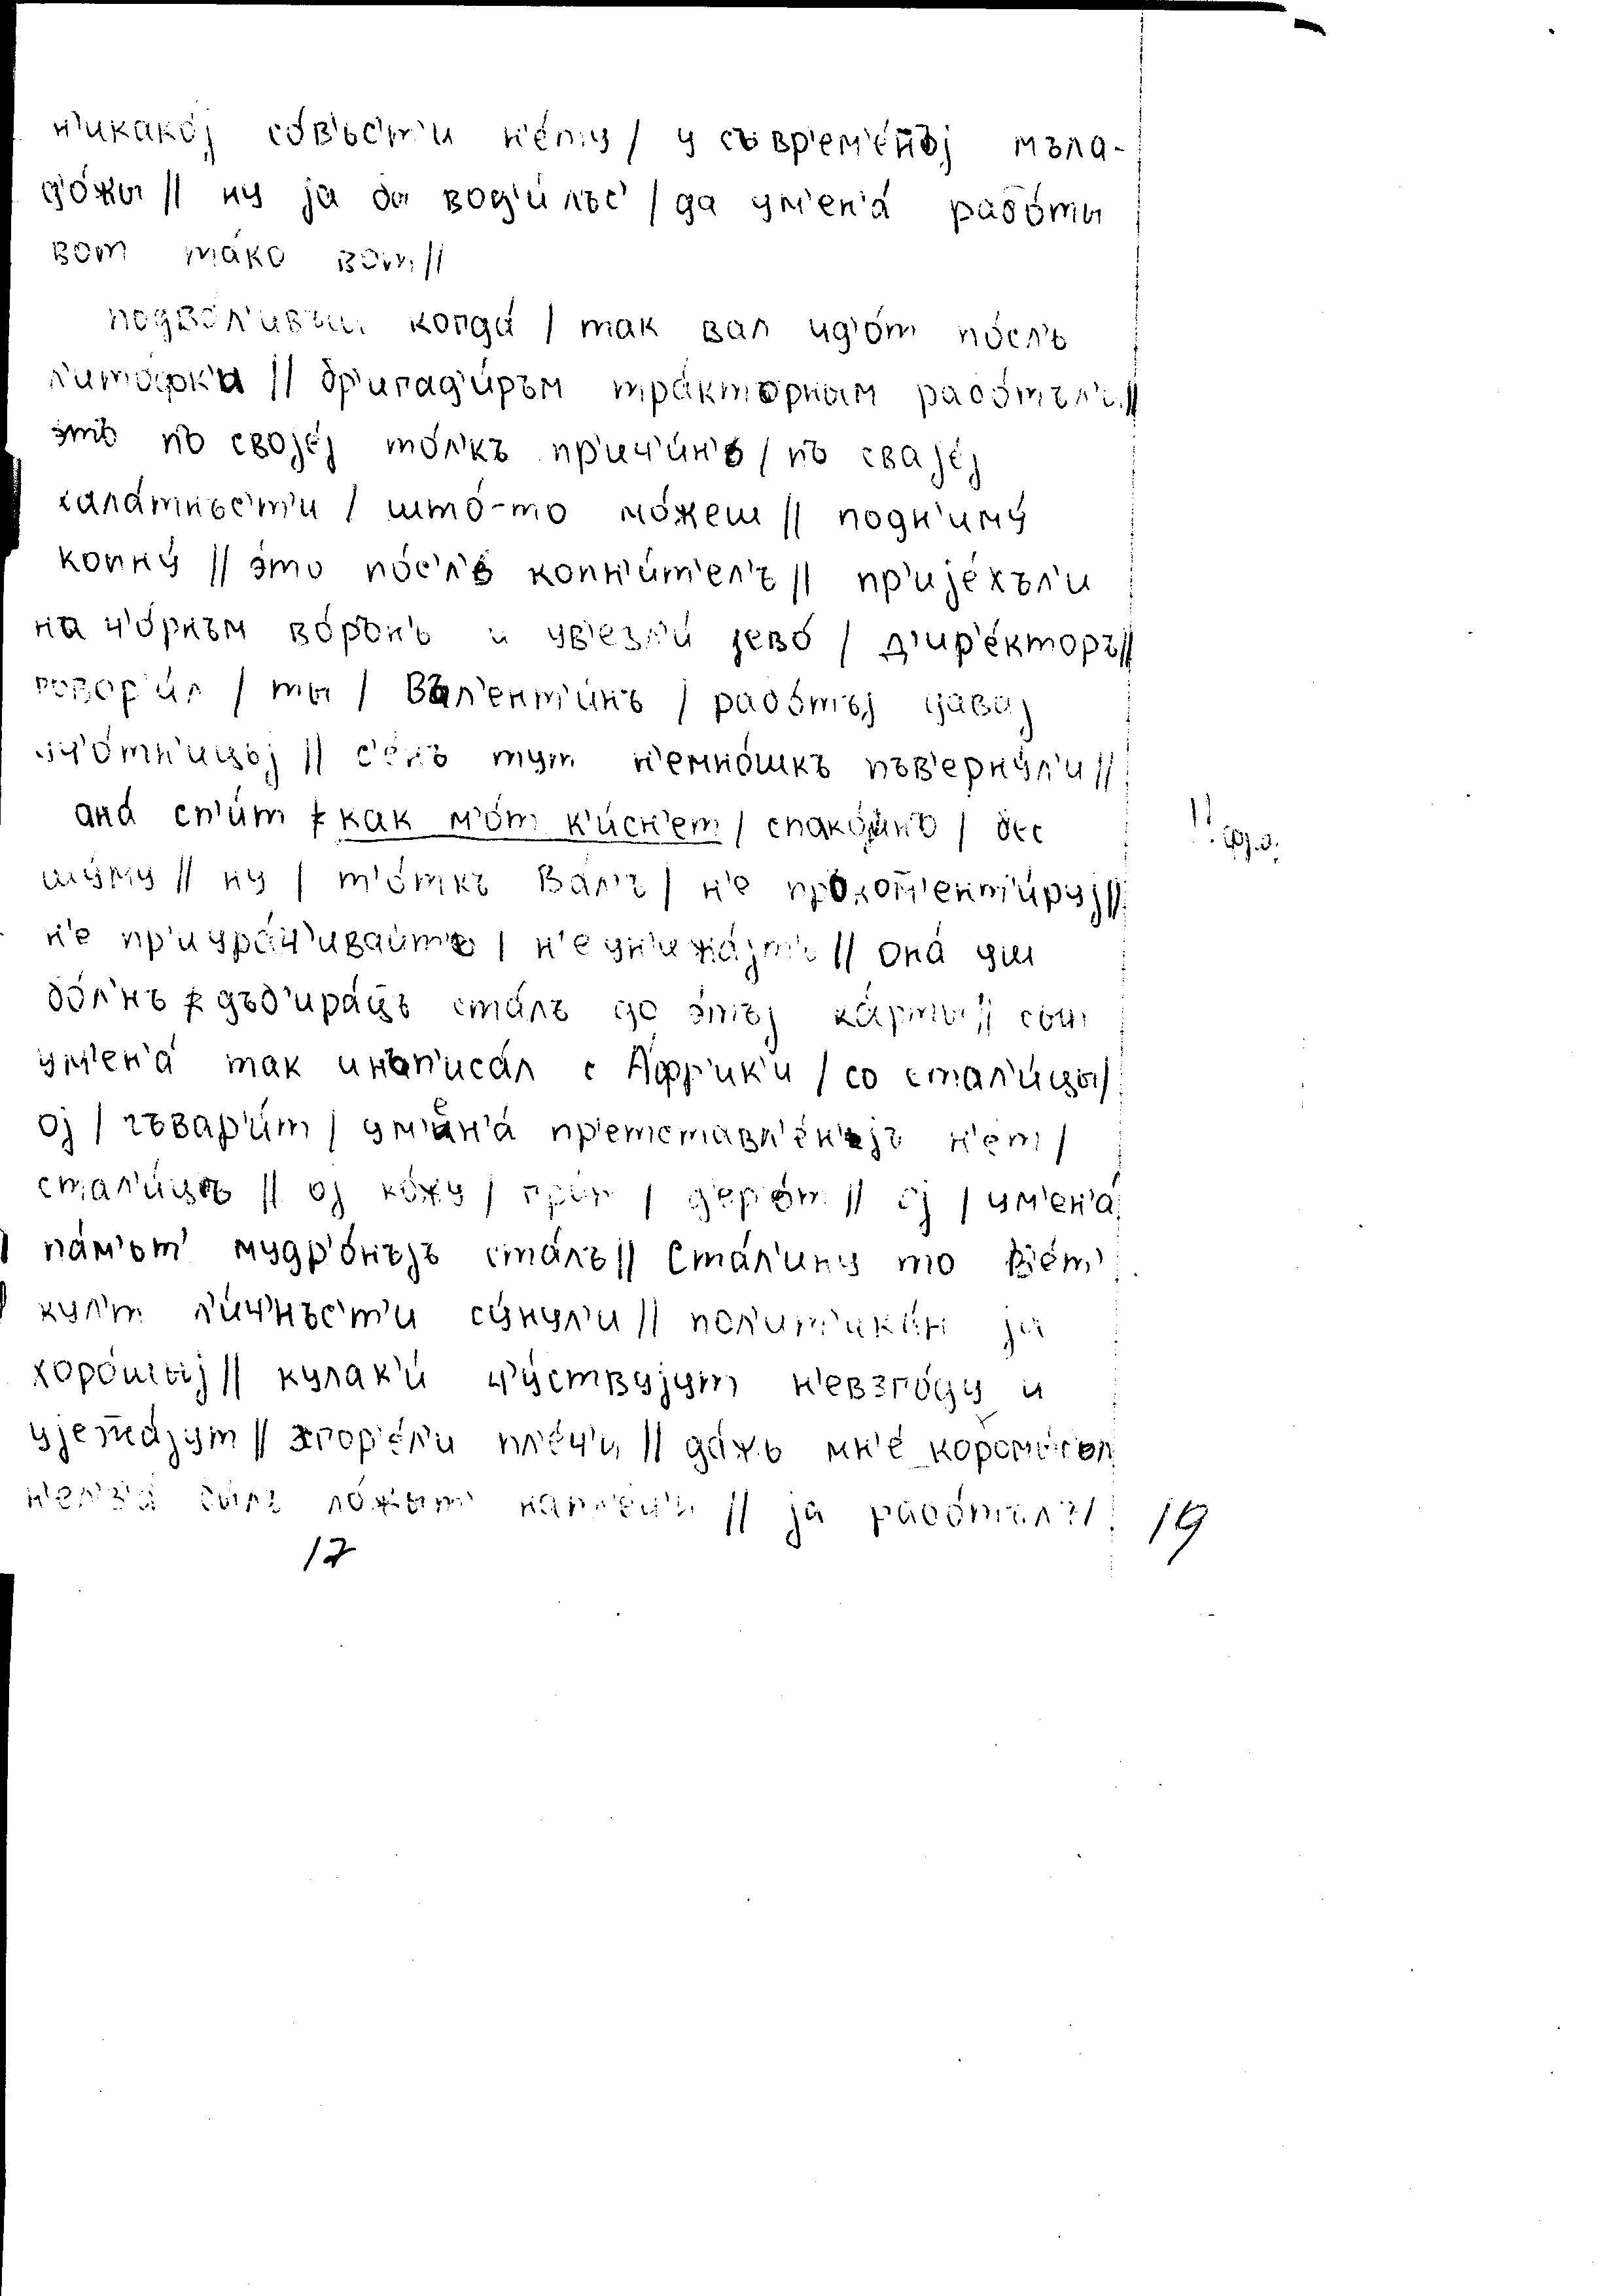 н'икако́j со́в'ьс'т'и н'е́ту / у съвр'ем'е́н̄ъj мъла-
д'о́жы // ну jа бы вод'и́лъс' / да ум'ен'а́ рабо́ты
вот та́ко вот //
подво́л'ивъш когда́ / так вал ид'о́т по́сл'ь
л'ито́фк'и // бр'игад'и́ръм тра́кторным рабо́тъл'и //
э́тъ пъ своjе́j то́л'къ пр'ич'и́н'ь / пъ сваjе́j
халáтнъс'т'и / што́-то мо́жеш // подн'иму́
копну́ // э́то по́с'л'ь копн'и́т'ел'ъ // пр'иjе́хъл'и
на ч'о́рнъм во́рън'ь и ув'езл'и́ jево́ / д'ир'е́кторъ //
говор'и́л / ты / Въл'ент'и́нъ / рабо́тъj давай
уч'о́тн'ицъj // с'е́нъ тут н'емно́шкъ пъв'ерну́л'и //
ана́ сп'и́т как м'о́т к'и́сн'ет / спако́йнъ / бес
шу́му // ну / т'о́ткъ Ва́л'ъ / н'е проком̄'ент'и́руj //
н'е пр'иура́ч'ивайт'ь / н'е ун'ижа́jт'ь // она́ уш
бо́л'нъ дъб'ира́ц̄ъ ста́лъ до э́тъj ка́рты // сын
ум'ен'а́ так и нъп'иса́л с А́фр'ик'и / со стал'и́цы /
оj / гъвар'и́т / ум'ен'а́ пр'етставл'е́н'иjъ н'ет /
стал'и́цъ // оj ко́жу / пр'ам / д'ер'о́т // оj / ум'ен'а́
па́м'ът' мудр'о́нъjъ ста́лъ // Ста́л'ину то в'ет'
кул'т л'и́ч'нъс'т'и су́нул'и // пол'ит'ика́н jа
хоро́шыj // кулак'и́ ч'у́ствуjут н'евзго́ду и
уjеж̄а́jут // згор'е́л'и пл'е́ч'и // да́жъ мн'е́ коромы́съл
н'ел'з'а́ бы́лъ ло́жыт' напл'е́ч'и // jа рабо́тълъ /
17
19